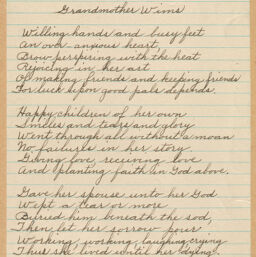 Grandmother Wims
Willing hands and busy feet
An over-anxious heart,
Brow perspiring with the heat
Rejoicing in her art
Of making friends and keeping friends
For luck upon good pals depends.
Happy children of her own
Smiles and tears and glory
Went through all without a moan
No failures in her story.
Giving love, receiving love
And planting faith in God above.
Gave her spouse unto her God
Wept a tear or more
Buried him beneath the sod,
Then let her sorrow pour
Working, working, laughing, crying
Thus she lived until her "dying".